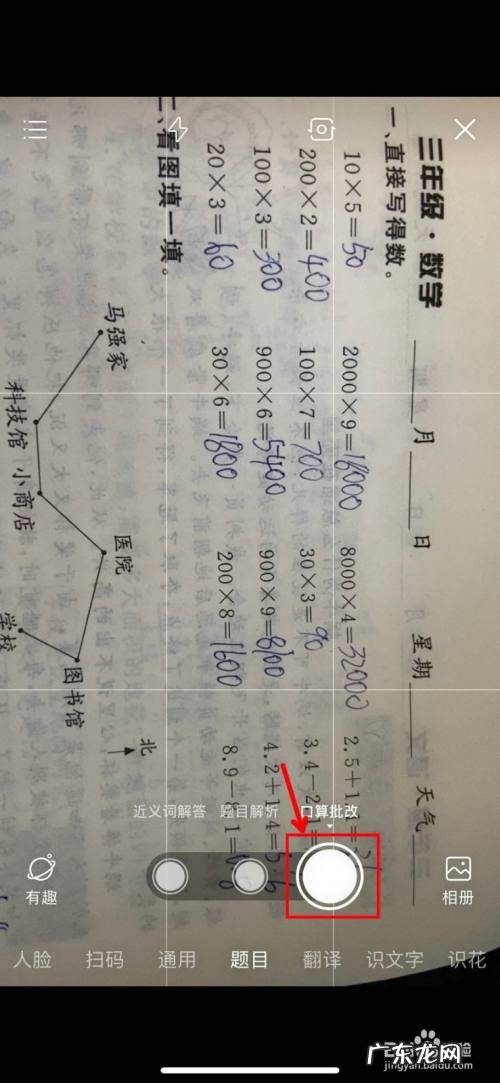 三年级·数学
月 日 星期 天气
一、直接写得数。
10×5=50 2000×9=18000 8000×4=32000
200×2=400 100×7=700 30×3=90
100×3=300 900×6=5400 900×9=8100
20×3=60 30×6=1800 200×8=1600
二、看图填一填。
马强家
科技馆
小商店
医院
图书馆
学校
北
近义词解答 题目解析 口算批改
有趣
相册
人脸 扫码 通用 题目 翻译 识文字 识花
广东龙网
jingyan.baidu.com